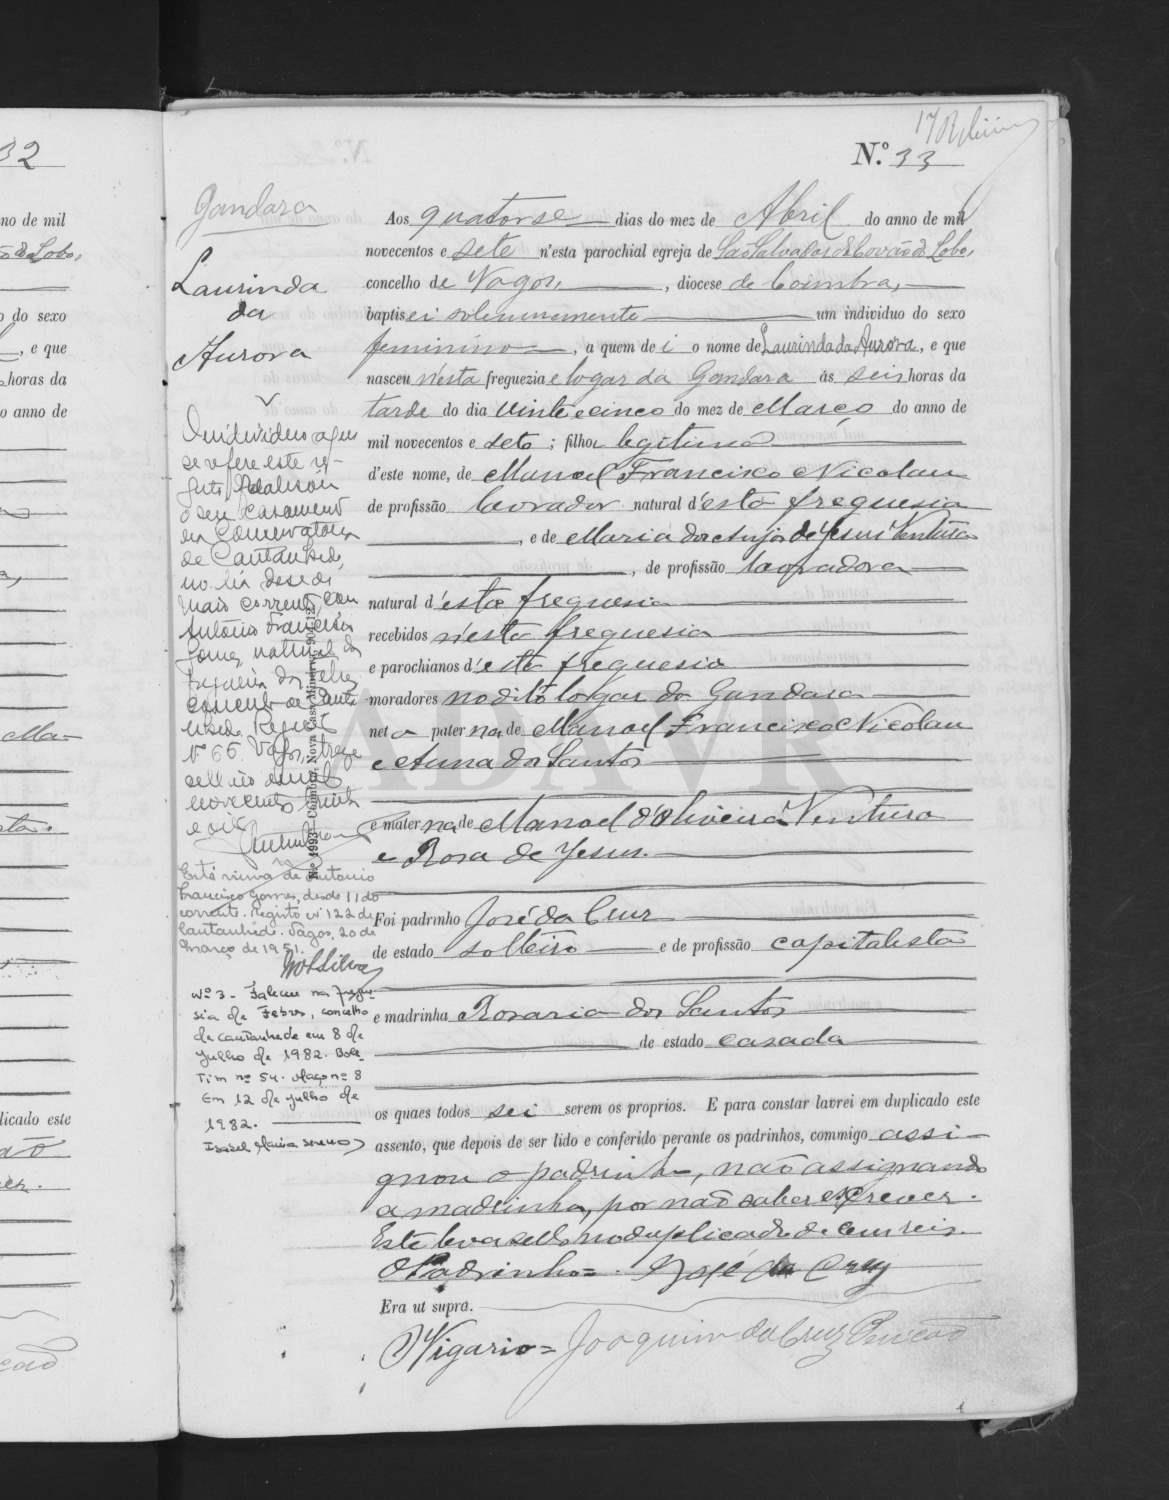 32
no de mil
ão de Lobo,
o do sexo
, e que
horas da
o anno de
Ma-
licado este
17
N.º 33
Gandara
Laurinda
da
Aurora
Aos quatorse dias do mez de Abril do anno de mil
novecentos e sete n'esta parochial egreja de São Salvador de Covão do Lobo,
concelho de Vagos, , diocese de Coimbra,
baptisei solemnemente um individuo do sexo
feminino , a quem dei o nome de Laurinda da Aurora , e que
nasceu n'esta freguezia e logar da Gandara ás seis horas da
tarde do dia vinte e cinco do mez de Março do anno de
mil novecentos e sete ; filha legitima
d'este nome, de Manoel Francisco Nicolau
de profissão lavrador natural d'esta freguesia
, e de Maria dos Anjos de Jesus Ventura
, de profissão lavradora
natural d'esta freguesia
recebidos n'esta freguesia
e parochianos d'esta freguesia
moradores no dito logar da Gandara
neta paterna de Manoel Francisco Nicolau
e Anna dos Santos
e materna de Manoel d'Oliveira Ventura
e Rosa de Jesus.
Foi padrinho José da Cruz
de estado solteiro e de profissão capitalista
e madrinha Rosaria dos Santos
de estado casada
os quaes todos sei serem os proprios. E para constar lavrei em duplicado este
assento, que depois de ser lido e conferido perante os padrinhos, commigo assi-
gnou o padrinho, não assignando
a madrinha, por não saber escrever.
Este leva sello no duplicado de cem reis.
O Padrinho= José da Cruz
Era ut supra.
O Vigario= Joaquim da Cruz
O individuo a que
se refere este re-
gisto realisou
o seu casamento
na Conservatoria
de Cantanhede,
no dia dose de
Maio corrente, com
António Francisco
Gomes, natural da
freguesia de Febres
concelho de Canta-
nhede. Registo
Nº 65. Vagos, treze
de mil
novecentos trinta
e oito
Está viuva de Antonio
Francisco Gomes, desde 11 do
corrente. Registo nº 122 de
Cantanhede. Vagos, 20 de
Março de 1951.
Silva
Nº 3 - Faleceu na fregue-
sia de Febres, concelho
de Cantanhede em 8 de
Julho de 1982. Bole-
tim nº 54. Maço nº 8
Em 12 de Julho de
1982.
Isabel Maria
Nº 1993—Coimbra, Nova Casa Minerva
ADAVR